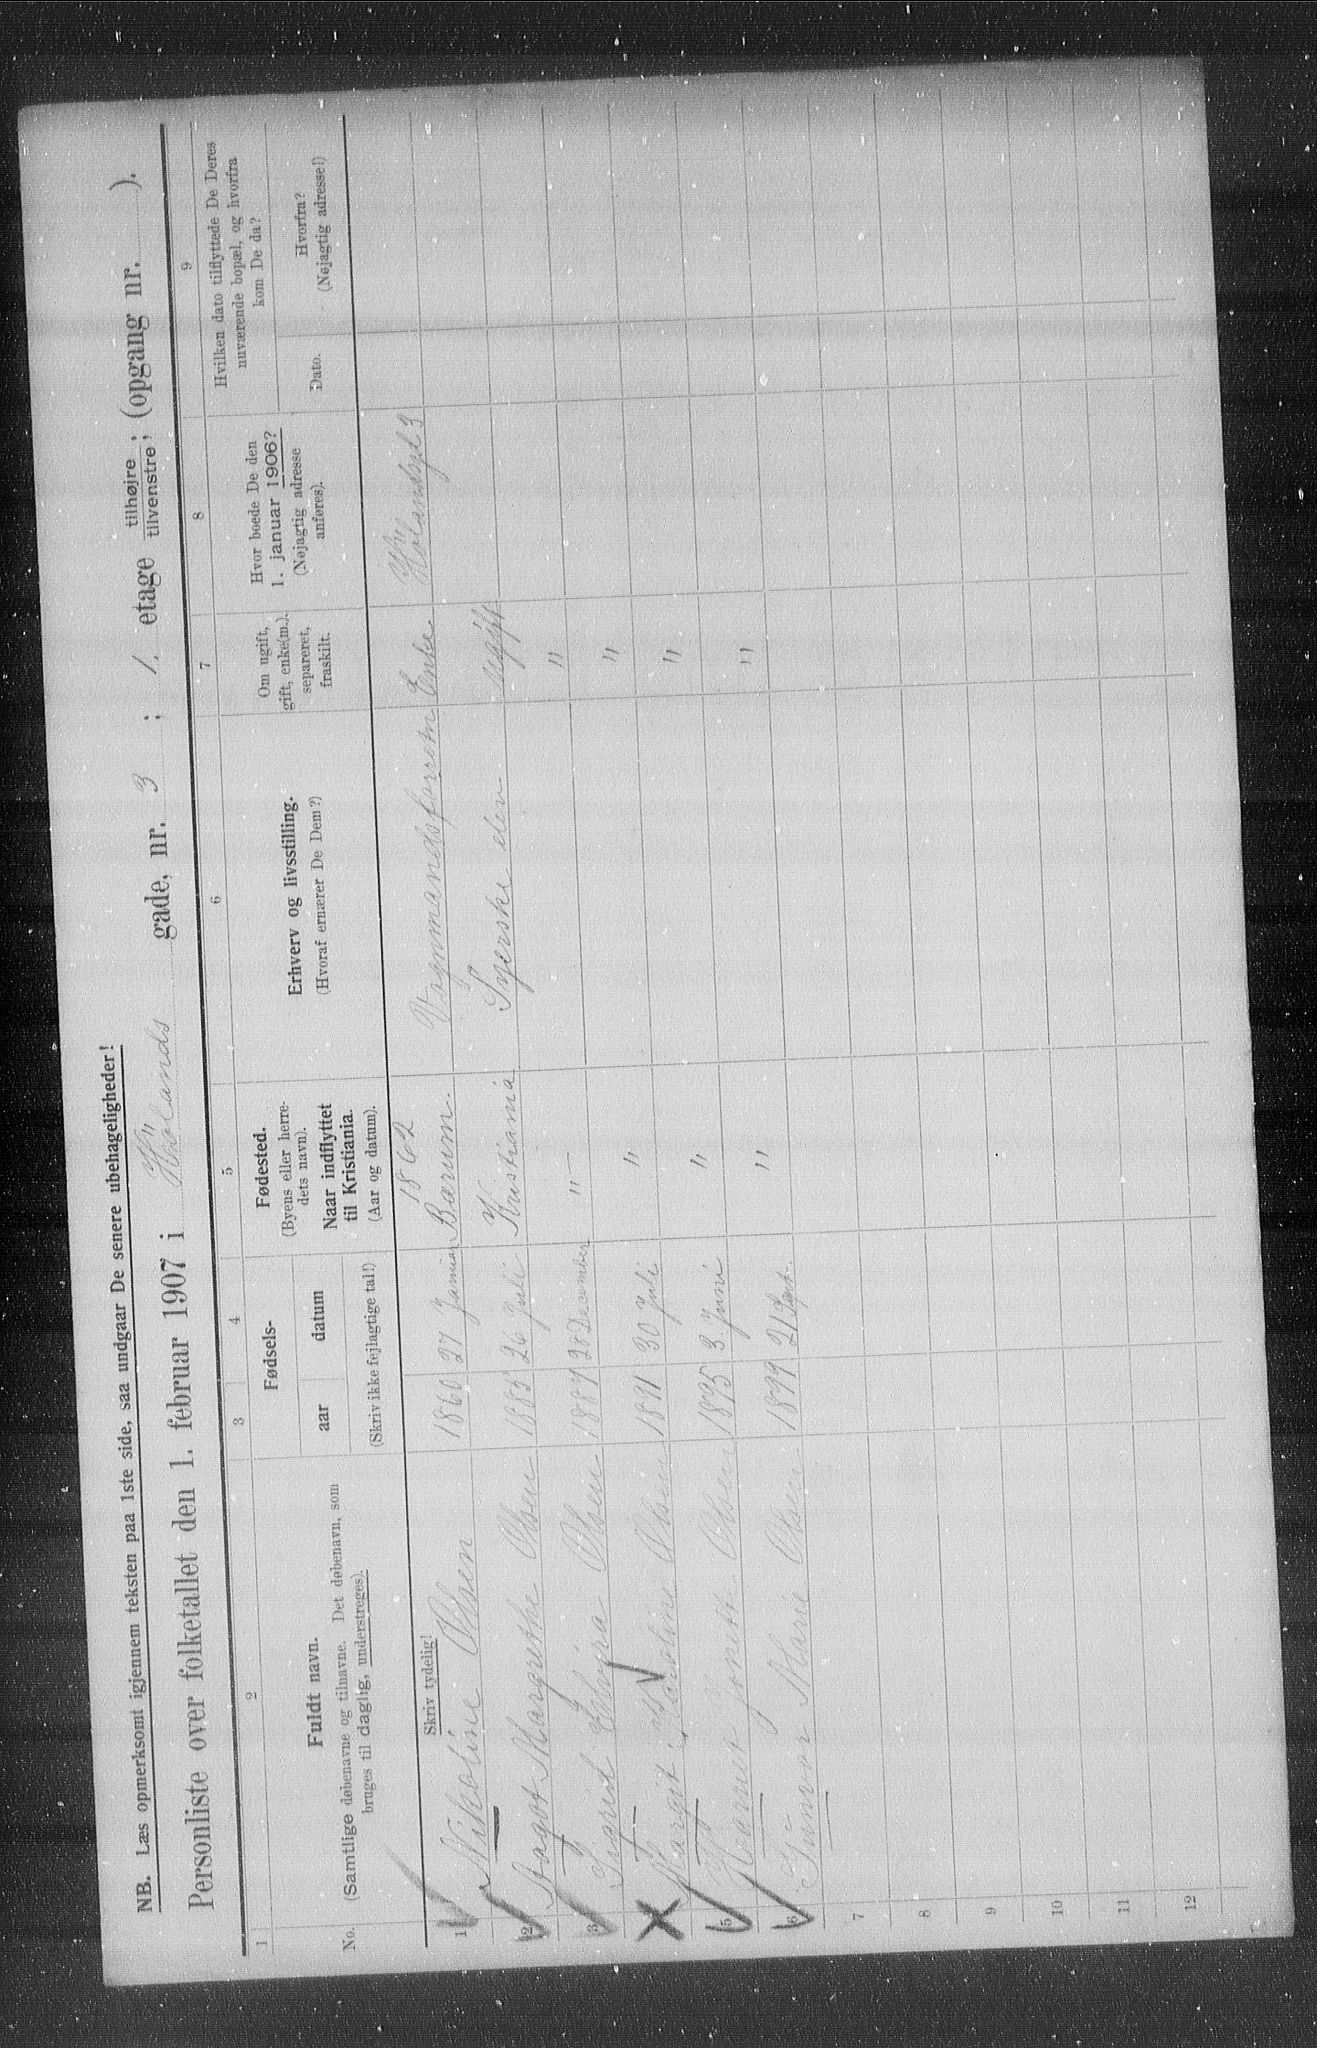 NB. Læs opmerksomt igjennem teksten paa 1ste side, saa undgaar De senere ubehageligheder!
Personliste over folketallet den 1. februar 1907 i Hølands gade, nr. 3 ; 1. etage tilhøjre ; tilvenstre ; (opgang nr. ).
1 2 3 4 5 6 7 8 9
No.
Fuldt navn.
(Samtlige døbenavne og tilnavne. Det døbenavn, som
bruges til daglig, understreges).
Fødsels-
aar datum
(Skriv ikke fejlagtige tal!)
Fødested.
(Byens eller herre-
dets navn).
Naar indflyttet
til Kristiania.
(Aar og datum).
Erhverv og livsstilling.
(Hvoraf ernærer De Dem?)
Om ugift,
gift, enke(m.),
separeret,
fraskilt.
Hvor boede De den
1. januar 1906?
(Nøjagtig adresse
anføres).
Hvilken dato tilflyttede De Deres
nuværende bopæl, og hvorfra
kom De da?
Dato.
Hvorfra?
(Nøjagtig adresse!)
Skriv tydelig!
1862
1 Nikoline Olsen 1860 27 Januar Bærum. Enke Hølandsgd 3
2 Dagot Margrethe Olsen 1885 26 Juli Kristiania Syerske elev ugift
3 Sigrid Elvira Olsen 1887 28 December " — "
4 Margit Karoline Olsen 1891 30 Juli " "
5 Harriet Jonette Olsen 1895 3 Juni " "
6 Gunvor Marie Olsen 1899 21 Sept. " "
7
8
9
10
11
12